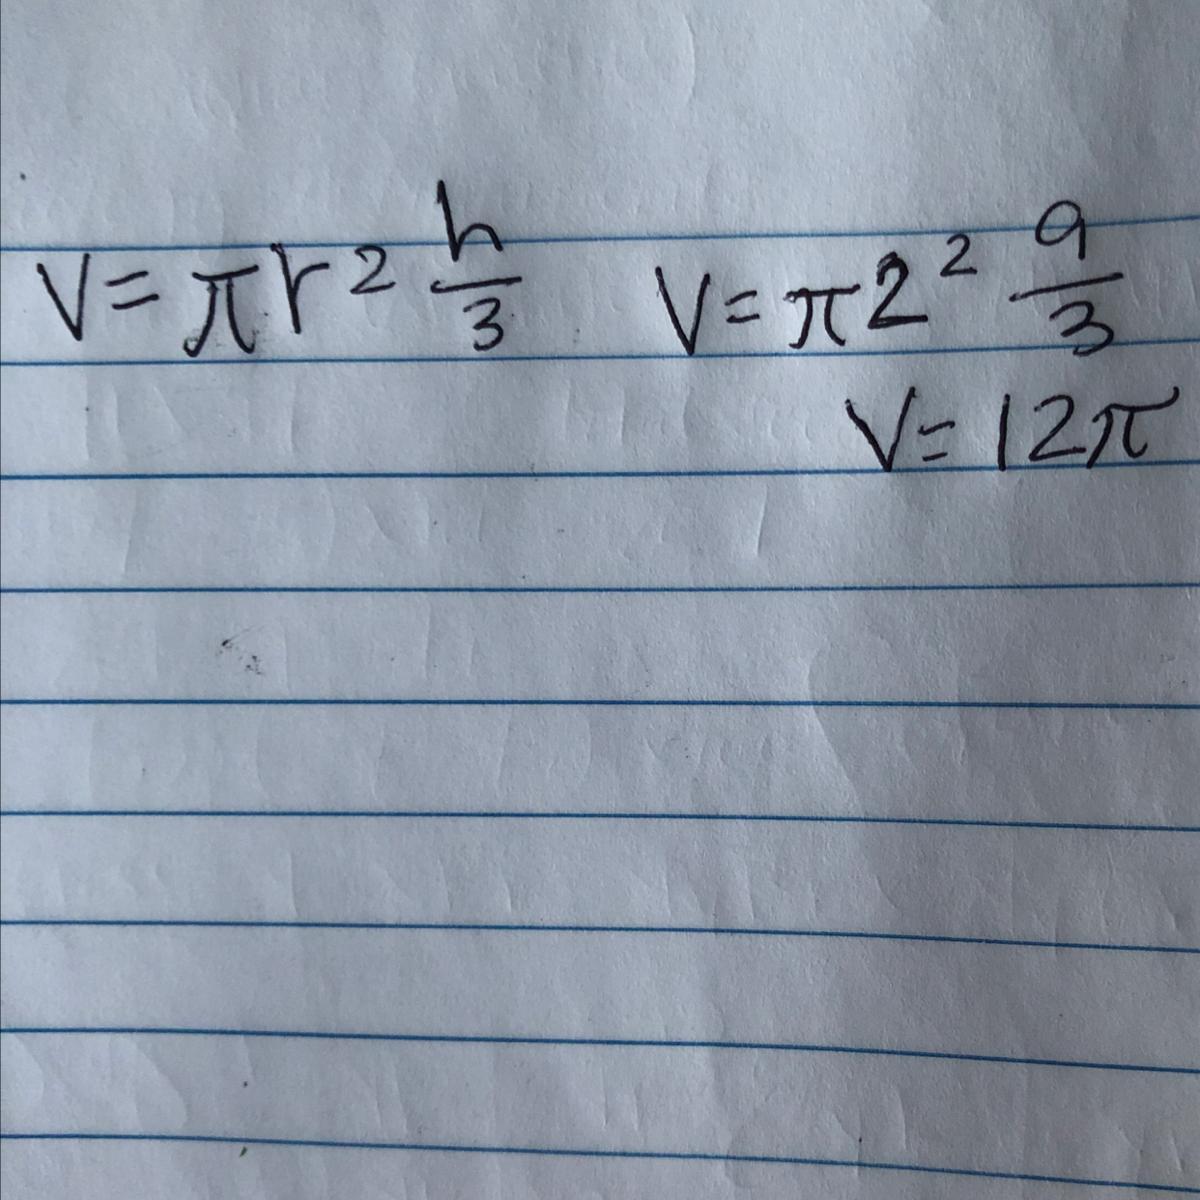 V = πr² h/3 V = π2² 9/3
V = 12π